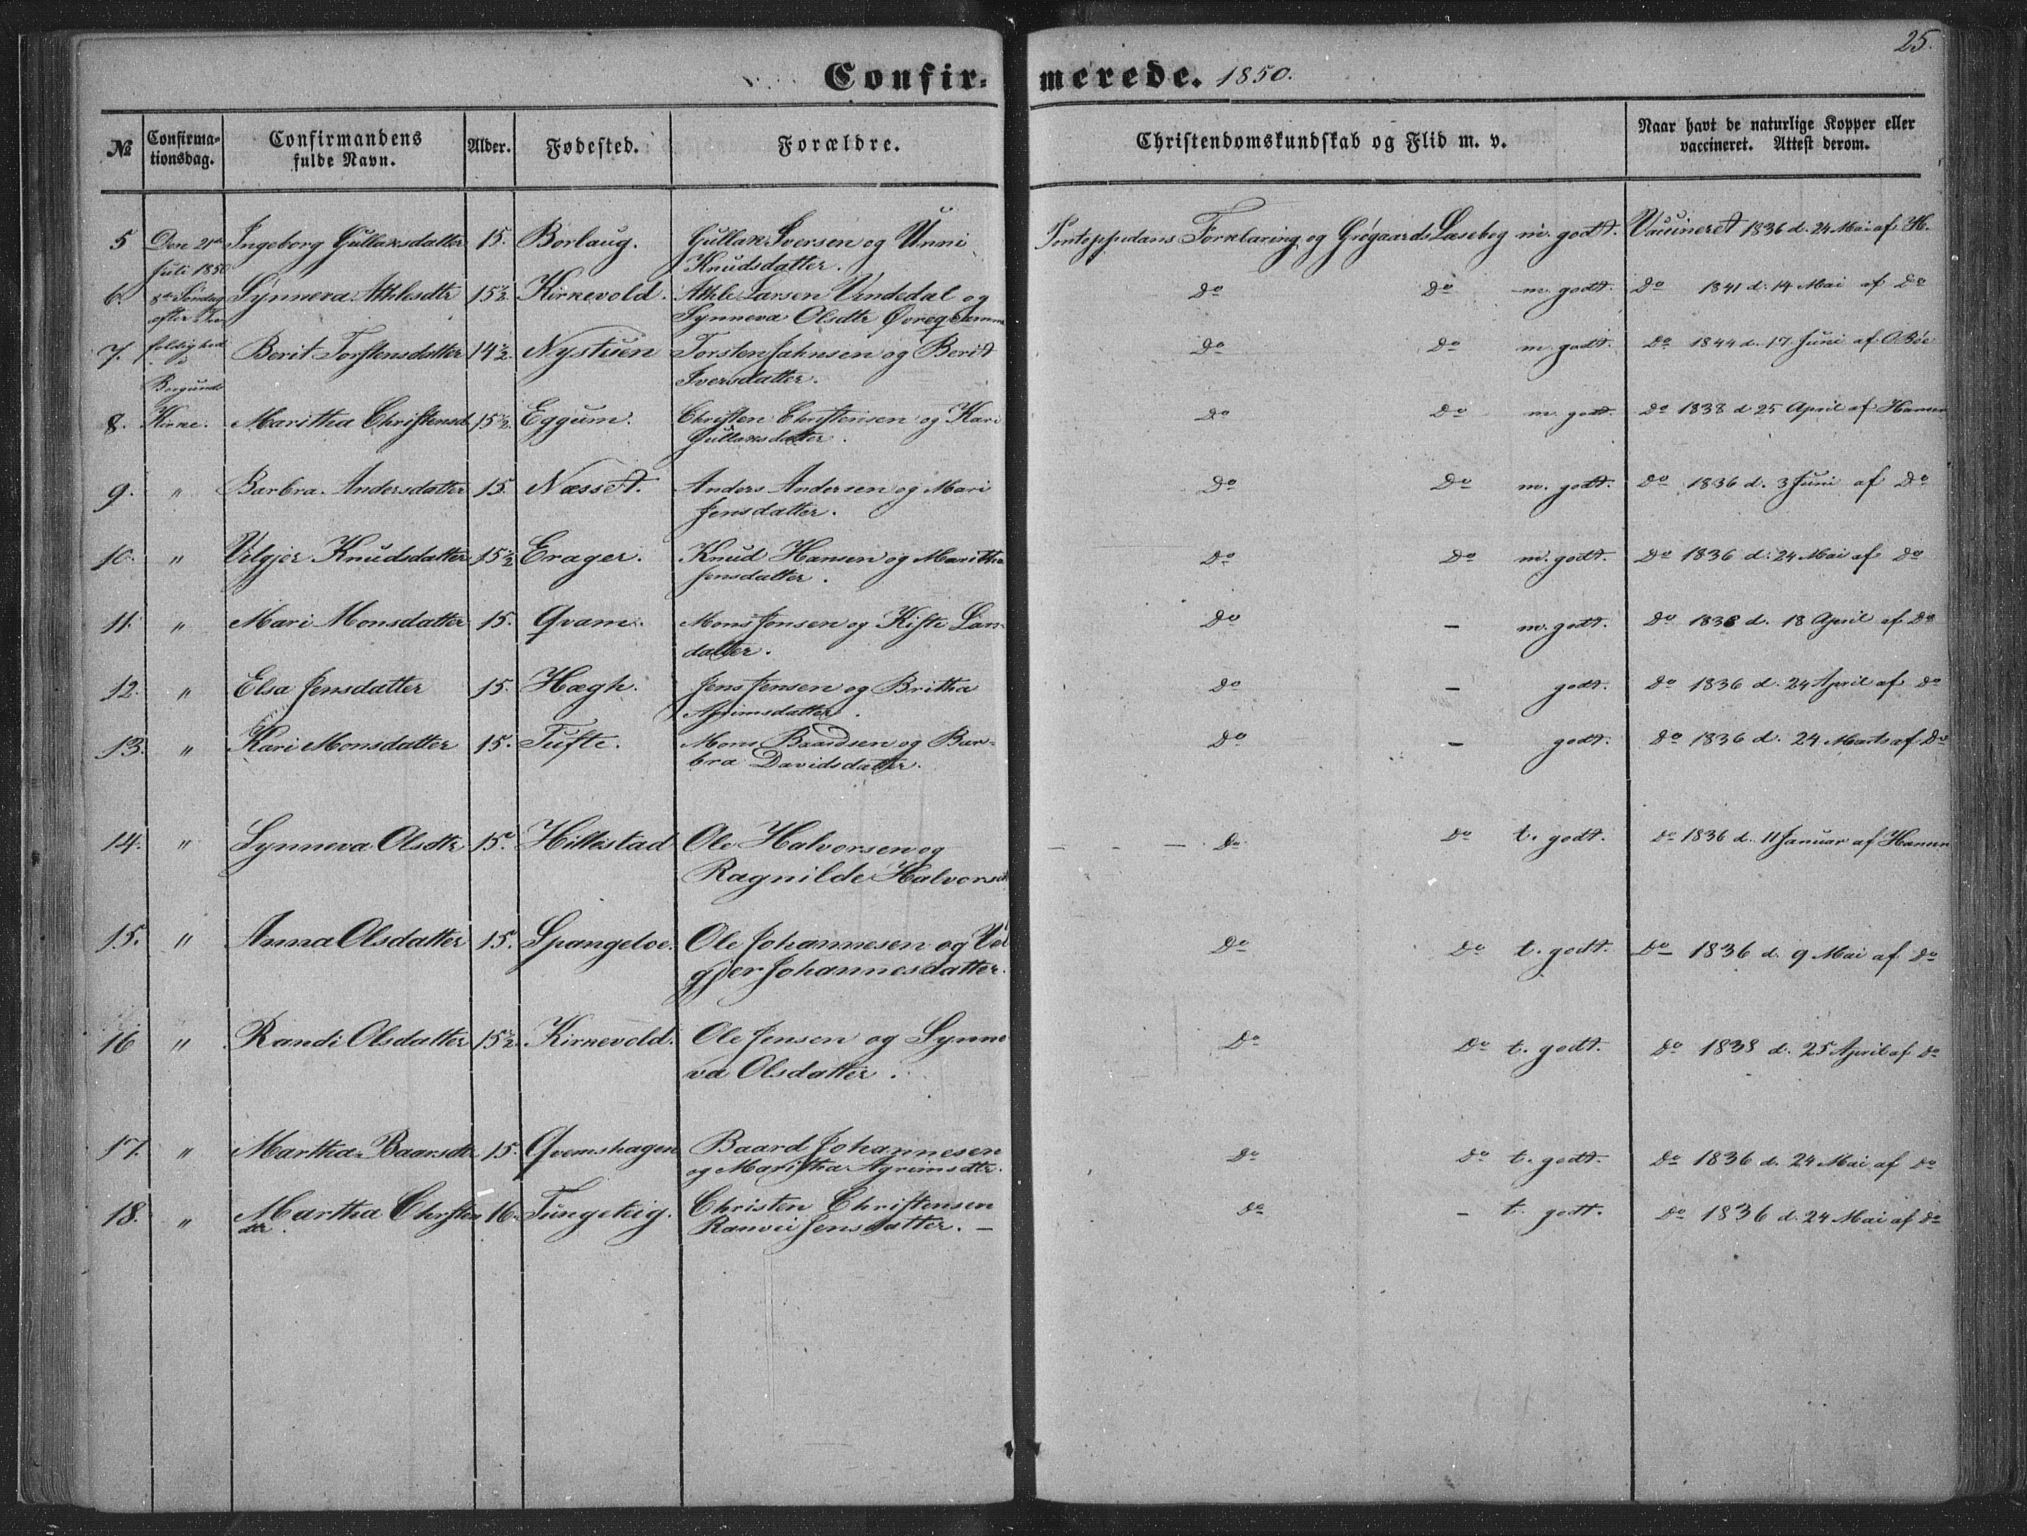 25.
Confirmerede. 1850.
№ Confirmationsdag. Confirmandens fulde Navn. Alder. Fødested. Forældre. Christendomskundskab og Flid m. v. Naar havt de naturlige Kopper eller vaccineret. Attest derom.
5 Den 21de Ingeborg Gullaksdatter 15. Borlaug. Gullak Iversen og Unni Pontoppidans Forklaring og Grøgaards Læsebog m. godt. Vaccineret 1836 d. 24 Mai af H.
Juli 1850 Knudsdatter.
6. 8de Søndag Synneva Athlesdtr 15½ Kirkevold. Athle Larsen Vendedal og Do Do m. godt. Do 1841 d. 14 Mai af Do
efter Tre Synneva Olsdtr
7. foldighed Berit Torstensdatter 14½ Nystuen Torsten Jahnsen og Berit Do Do m. godt. Do 1844 d. 17 Juni af O Bøe
i Iversdatter.
Borgunds
8. Kirke. Maritha Christensd 15½ Eggum. Christen Christensen og Kari Do Do m. godt. Do 1838 d. 25 April af Hansen
Gullaksdatter.
9. " Barbra Andersdatter 15. Næsset. Anders Andersen og Mari Do Do m. godt. Do 1836 d. 3 Juni af Do
Jensdatter.
10. " Vilgjer Knudsdatter 15½ Erager. Knud Hansen og Maritha Do Do m. godt. Do 1836 d. 24 Mai af Do
Jensdatter.
11. " Mari Monsdatter 15. Qvam. Mons Jensen og Kiste Lars- Do - m. godt. Do 1838 d. 18 April af Do
datter.
12. " Elsa Jensdatter 15. Hægh. Jens Jensen og Britha Do - godt. Do 1836 d. 24 April af Do
Agrimsdatter.
13. " Kari Monsdatter 15. Tufte. Mons Baardsen og Bar- Do - godt. Do 1836 d. 24 Marts af Do
bra Davidsdatter.
14. " Synneva Olsdtr 15. Hillestad Ole Halvorsen og - - - Do Do t. godt. Do 1836 d. 11 Januar af Hansen
Ragnilde Halvorsd
15. " Anna Olsdatter 15. Spangeloe. Ole Johannesen og Vil Do Do t. godt. Do 1836 d. 9 Mai af Do
gjer Johannesdatter.
16 " Randi Olsdatter 15½ Kirkevold. Ole Jensen og Synne Do Do t. godt. Do 1838 d. 25 April af Do
va Olsdatter.
17. " Martha Baarsdtr 15. Qvemshagen Baard Johannesen Do Do t. godt. Do 1836 d. 24 Mai af Do
og Maritha Agrimsdtr.
18. " Martha Christen 16. Tungeteig. Christen Christensen Do - t. godt. Do 1836 d. 24 Mai af Do
dtr. Ranvei Jensdatter. -